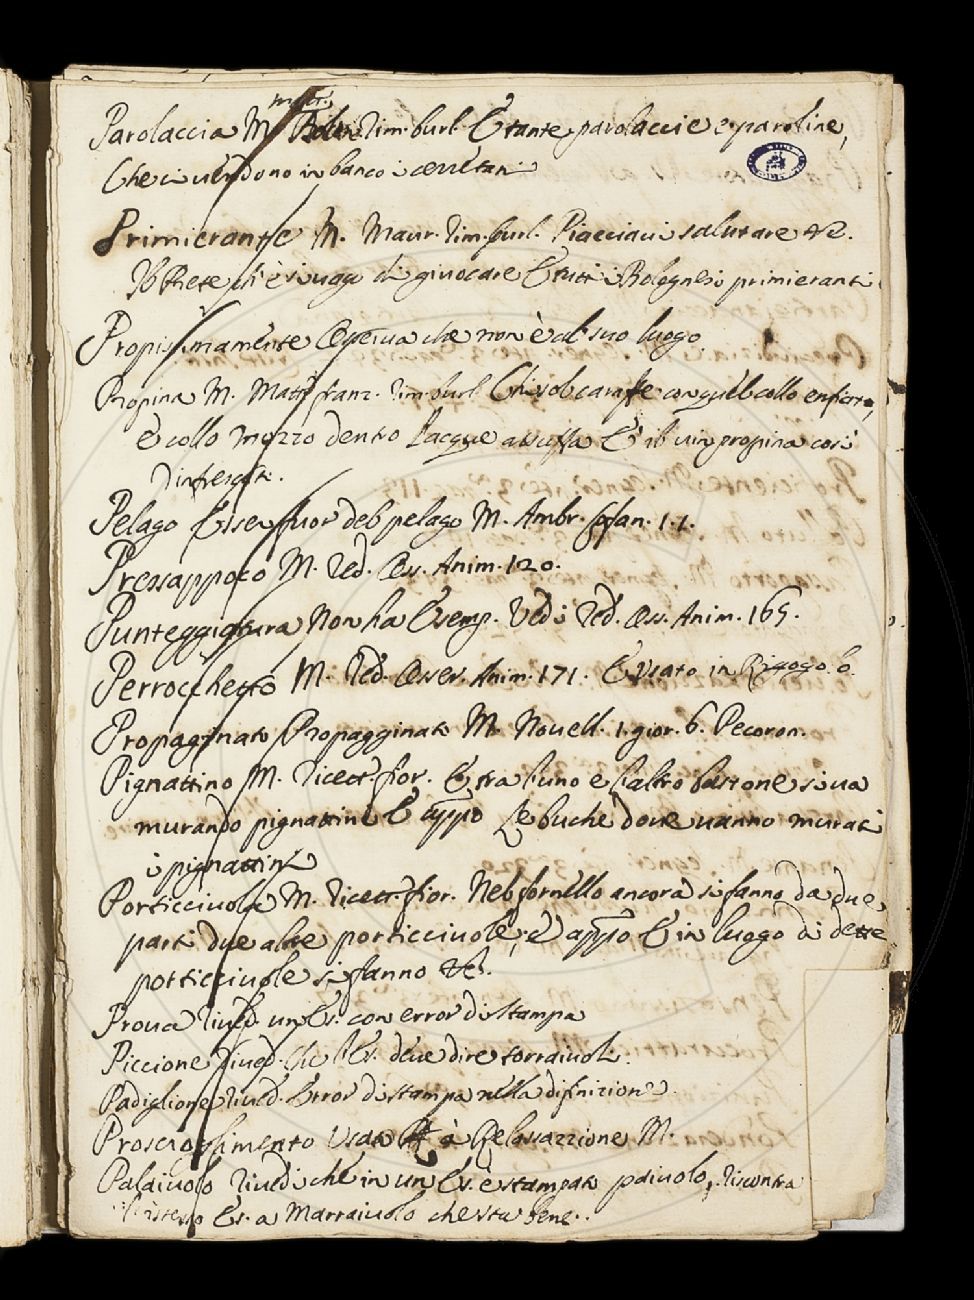 Parolaccia M. Rim. burl. E tante parolaccie e paroline,
Che ci vendono in banco i cerretani
Primierante M. Maur. Rim. burl. Piacciavi salutare &c.
Il Prete ch'è sì vago di giuocare E tutti i Bolognesi primieranti
Propissimamente Osserva che non è al suo luogo.
Propina M. Matt. franz. Rim. burl. Chi vol caraffe con quel collo enfiato,
E collo mozzo dentro l'acque attuffa E il vin propina così
rinfrescati.
Pelago Esser fuor del pelago M. Ambr. Cofan. 1. 1.
Pressappoco M. Red. Oss. Anim. 120.
Punteggiatura Non ha Esemp. Vedi Red. Oss. Anim. 165.
Perrocchetto M. Red. Osser. Anim. 171. E usato in Rigogolo.
Propaginato Propagginato M. Novell. 1. gior. 6. Pecoron.
Pignattino M. Ricett. fior. E tra l'uno e l'altro bastone si va
murando pignattini E appo Le buche dove vanno murati
i pignattini
Porticciuola M. Ricett. fior. Nel fornello ancora si fanno da due
parti due altre porticciuole, e appo E in luogo di dette
porticciuole si fanno &c.
Prova Rived. un Es. con error di stampa
Piccione Rived. che l'Es. deve dire torraiuoli.
Padiglione Rived. Error di stampa nella difinizione.
Proscioglimento Usato à Rilassazione M.
Palaiuolo Rivedi che in un Es. è stampato paivolo, Riscontra
l'istesso Es. a Marraiuolo che sta bene.